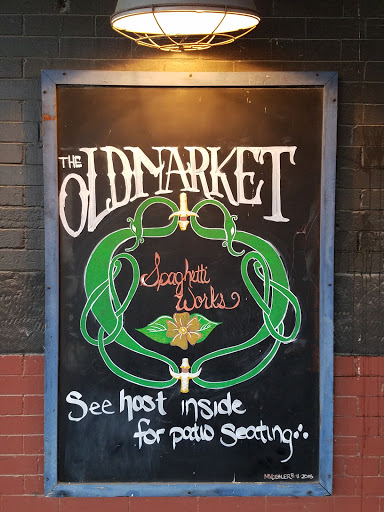 THE
OLDMARKET
Spaghetti
Works
See host inside
for patio seating